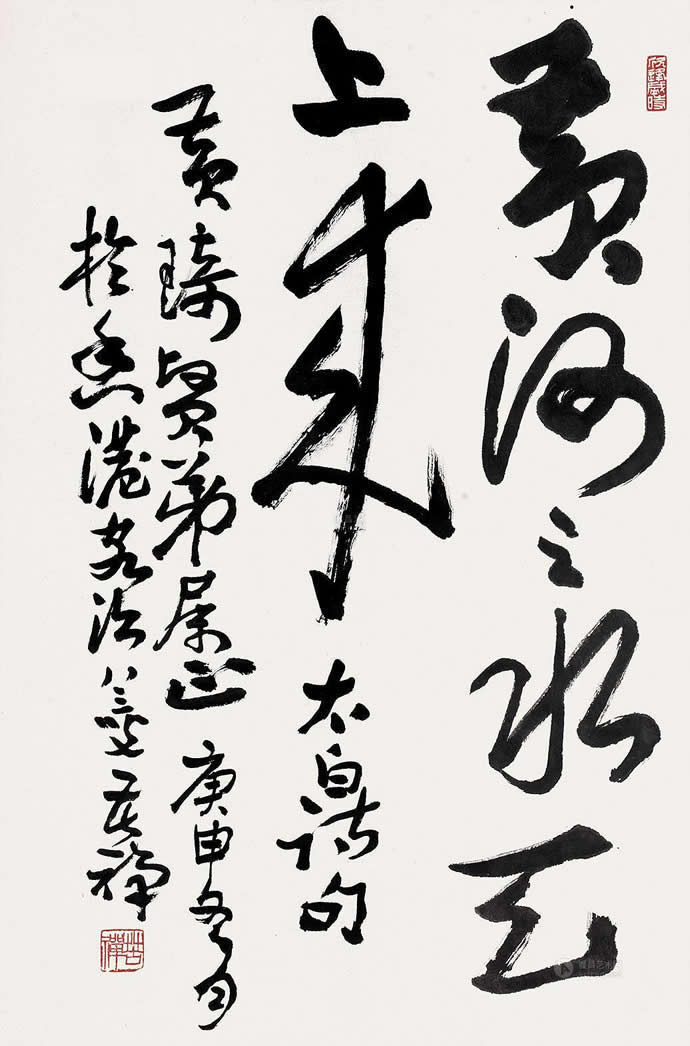 黄河之水天
上来 太白诗句
黄琦贤弟属正 庚申冬月
於香港客次 八三叟 苦禅
苦禅